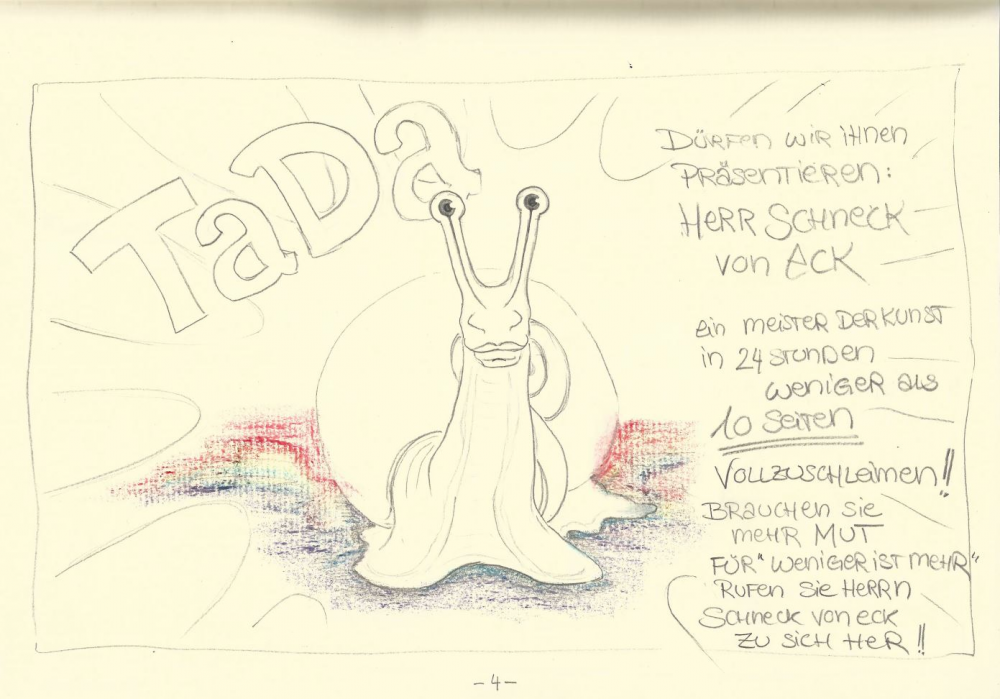 TaDa
DÜRFEN WIR IHNEN
PRÄSENTIEREN:
HERR SCHNECK
VON ECK
EIN MEISTER DER KUNST
IN 24 STUNDEN
WENIGER ALS
10 SEITEN
VOLLZUSCHLEIMEN!!
BRAUCHEN SIE
MEHR MUT
FÜR "WENIGER IST MEHR"
RUFEN SIE HERRN
SCHNECK VON ECK
ZU SICH HER!!
-4-